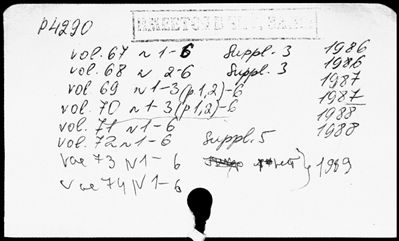 P4290
vol. 67 N 1-6 Suppl. 3 1986
vol. 68 N 2-6 Suppl. 3 1986
vol. 69 N 1-3(p1,2)-6 1987
vol. 70 N 1-3(p1,2)-6 1987
vol. 71 N 1-6 1988
vol. 72 N 1-6 Suppl. 5 1988
vol 73 N 1-6 1989
vol 74 N 1-6